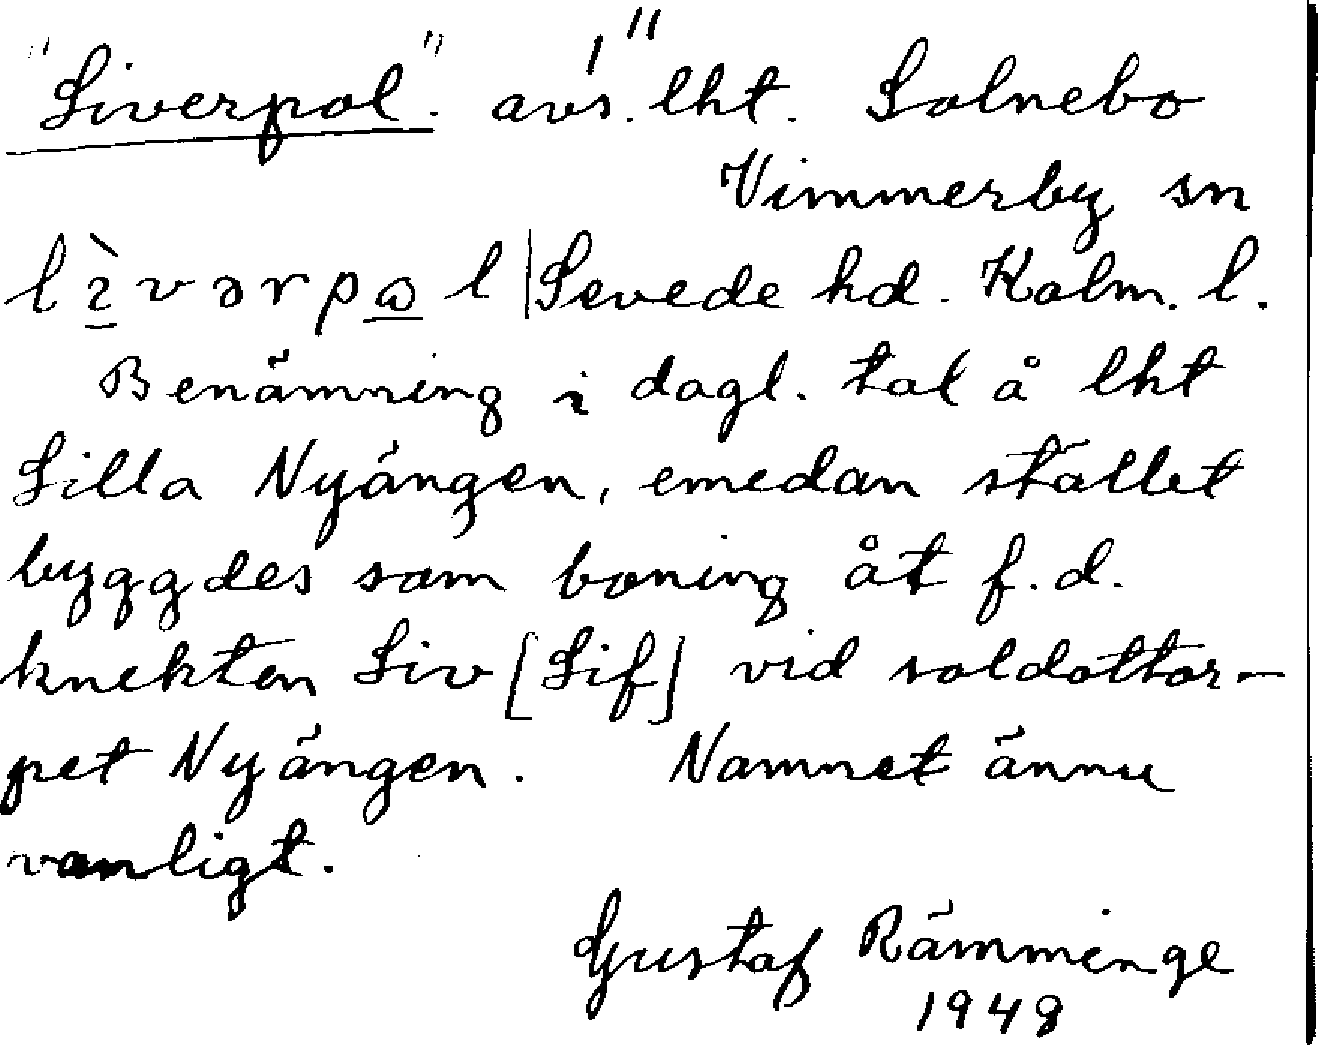 "Liverpol". avs. lht. Solnebo
Vimmerby sn
lìvərpɷl | Sevede hd. Kalm. l.
Benämning i dagl. tal å lht
Lilla Nyängen, emedan stället
byggdes som boning åt f.d.
knekten Liv [Lif] vid soldattor-
pet Nyängen. Namnet ännu
vanligt.
Gustaf Rämminge
1948